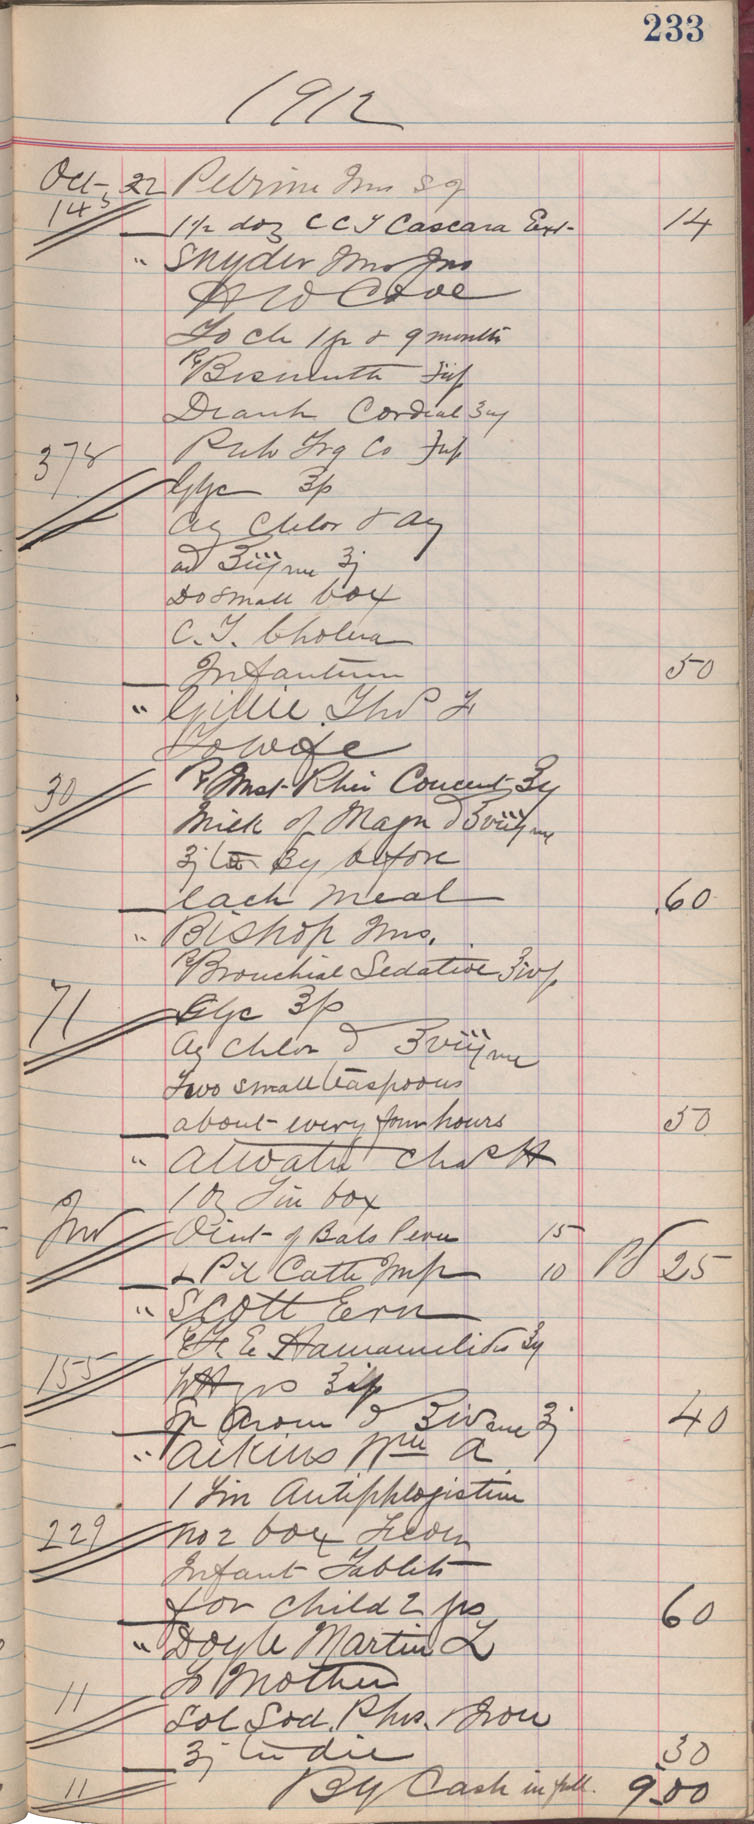 233
1912
Oct 22 Petrime Jms Sq
143
1 1/2 doz C C T Cascara Ext 14
" Snyder Jms Jno
A W Cove
To ch 1 yr & 9 months
Rx Bismuth
Cordial
378
Glyc ʒp
Aq Chlor & Aq
ad ʒiij me ʒj
Do small box
C. T. Cholera
Infantum 50
" Gillie Thos F
To wife
30
Rx Inst Rhei Concent ʒij
Milk of Magn ʒviij me
ʒj before
each meal .60
" Bishop Jms.
Rx Bronchial Sedative ʒivp
71
Glyc ʒp
Aq Chlor ʒviij me
Two small teaspoons
about every four hours 50
" Atwater Chas H
1 oz Tin box
Inv
Oint of Bals Peru 15
& Pil Cath Imp 10 Pd 25
" Scott Ern
Rx F. E. Hamamelidis ʒij
155
Sp Arom ʒiv me ʒj 40
" Aikins Wm A
1 Tin Antiphlogistine
229
No 2 box
Infant Tablets
for child 2 yrs 60
" Doyle Martin L
To Mother
11
Sol Sod. Phos. & Iron
ʒj in die 30
11
By Cash in full. 9.00